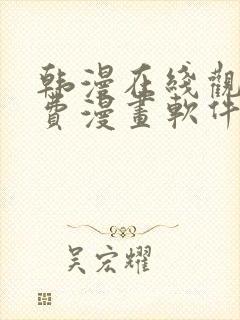 韩漫在线觀
費漫畫軟件
吴宏耀